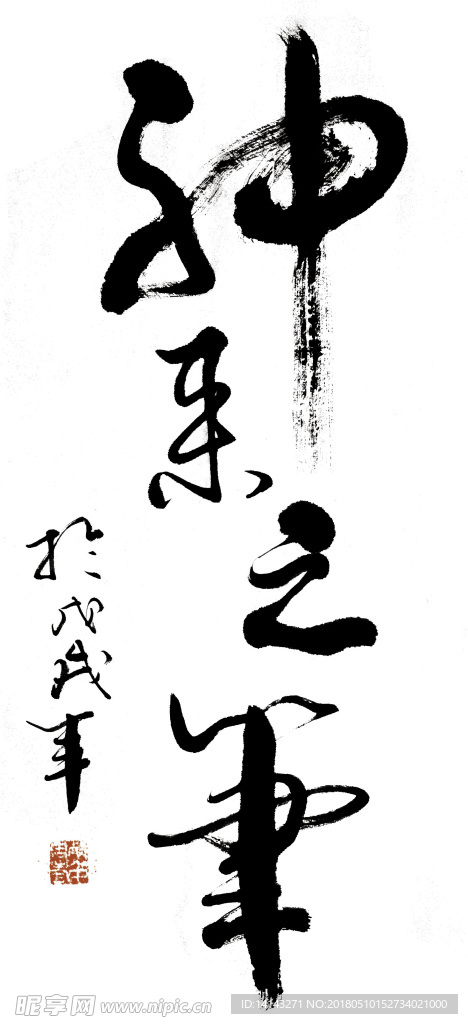 神来之筆
於戊戌年
昵享网 www.nipic.cn
ID:14143271 NO:20180510152734021000